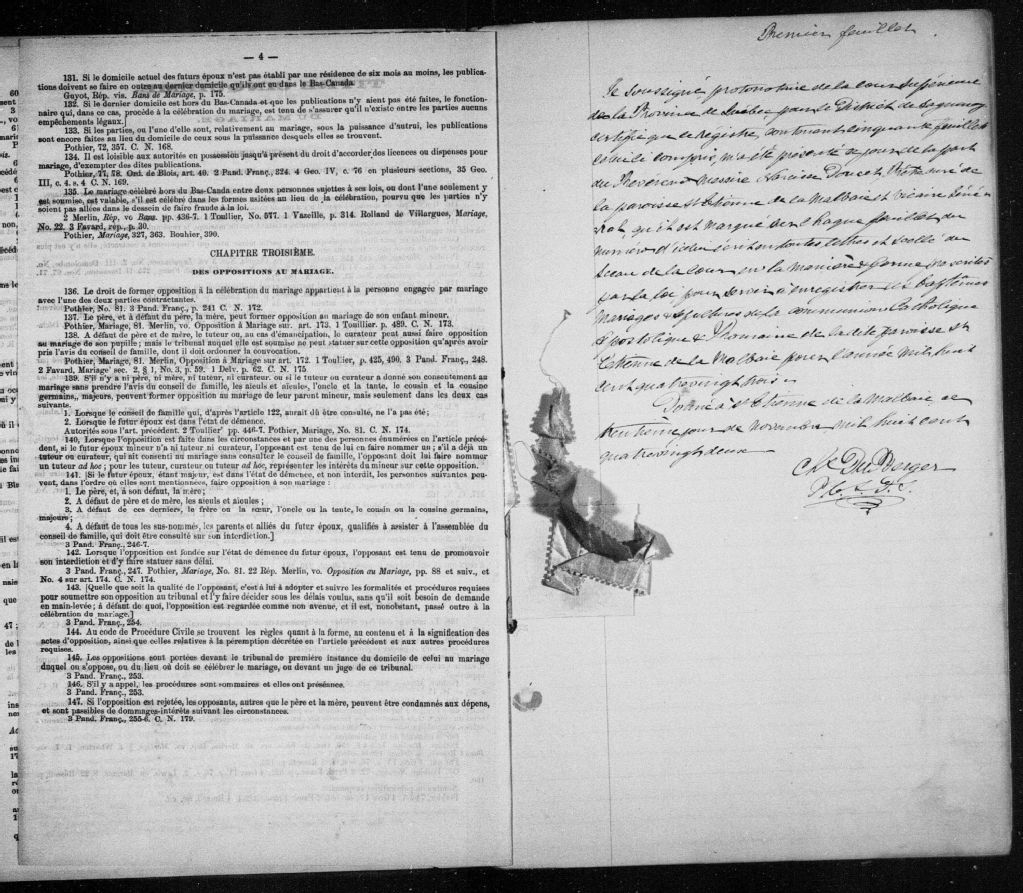 — 4 —
131. Si le domicile actuel des futurs époux n'est pas établi par une résidence de six mois au moins, les publica-
tions doivent se faire en outre au dernier domicile qu'ils ont eu dans le Bas-Canada.
Guyot, Rép. vis. Bans de Mariage, p. 175.
132. Si le dernier domicile est hors du Bas-Canada et que les publications n'y aient pas été faites, le fonction-
naire qui, dans ce cas, procède à la célébration du mariage, est tenu de s'assurer qu'il n'existe entre les parties aucun
empêchements légaux.
133. Si les parties, ou l'une d'elle sont, relativement au mariage, sous la puissance d'autrui, les publications
sont encore faites au lieu du domicile de ceux sous la puissance desquels elles se trouvent.
Pothier, 72, 357. C. N. 168.
134. Il est loisible aux autorités en possession jusqu'à présent du droit d'accorder des licences ou dispenses pour
mariage, d'exempter des dites publications.
Pothier, 77, 78. Ord. de Blois, art. 40. 2 Pand. Franç., 324. 4 Geo. IV, c. 76 en plusieurs sections, 35 Geo.
III, c. 4. s. 4 C. N. 169.
135. Le mariage célébré hors du Bas-Canda entre deux personnes sujettes à ses lois, ou dont l'une seulement y
est soumise, est valable, s'il est célébré dans les formes usitées au lieu de la célébration, pourvu que les parties n'y
soient pas allées dans le dessein de faire fraude à la loi.
2 Merlin, Rép, vo Bans. pp. 436-7. 1 Toullier, No. 577. 1 Vazeille, p. 314. Rolland de Villargues, Mariage,
No. 22. 3 Favard, rép., p. 30.
Pothier, Mariage, 327, 363. Bouhier, 390.
CHAPITRE TROISIÈME.
DES OPPOSITIONS AU MARIAGE.
136. Le droit de former opposition à la célébration du mariage appartient à la personne engagée par mariage
avec l'une des deux parties contractantes.
Pothier, No. 81. 3 Pand. Franç., p. 241 C. N. 172.
137. Le père, et à défaut du père, la mère, peut former opposition au mariage de son enfant mineur.
Pothier, Mariage, 81. Merlin, vo. Opposition à Mariage sur. art. 173, 1 Touillier. p. 489. C. N. 173.
138. A défaut de père et de mère, le tuteur ou, au cas d'émancipation, le curateur peut aussi faire opposition
au mariage de son pupille; mais le tribunal auquel elle est soumise ne peut statuer sur cette opposition qu'après avoir
pris l'avis du conseil de famille, dont il doit ordonner la convocation.
Pothier, Mariage, 81. Merlin, Opposition à Mariage sur art. 172. 1 Toullier, p. 425, 490. 3 Pand. Franç., 248.
2 Favard, Mariage sec. 2, § 1, No. 3, p. 59. 1 Delv. p. 62. C. N. 175.
139. S'il n'y a ni père, ni mère, ni tuteur, ni curateur, ou si le tuteur ou curateur a donné son consentement au
mariage sans prendre l'avis du conseil de famille, les aïeuls et aïeules, l'oncle et la tante, le cousin et la cousine
germains, majeurs, peuvent former opposition au mariage de leur parent mineur, mais seulement dans les deux cas
suivants.
1. Lorsque le conseil de famille qui, d'après l'article 122, aurait dû être consulté, ne l'a pas été;
2. Lorsque le futur époux est dans l'état de démence.
Autorités sous l'art. précédent. 2 Toullier pp. 446-7. Pothier, Mariage, No. 81. C. N. 174.
140. Lorsque l'opposition est faite dans les circonstances et par une des personnes énumérées en l'article précé-
dent, si le futur époux mineur n'a ni tuteur ni curateur, l'opposant est tenu de lui en faire nommer un; s'il a déjà un
tuteur ou curateur, qui ait consenti au mariage sans consulter le conseil de famille, l'opposant doit lui faire nommer
un tuteur ad hoc; pour les tuteur, curateur ou tuteur ad hoc, représenter les intérêts du mineur sur cette opposition.
141. [Si le futur époux, étant majeur, est dans l'état de démence, et non interdit, les personnes suivantes peu-
vent, dans l'ordre où elles sont mentionnées, faire opposition à son mariage:
1. Le père, et, à son défaut, la mère;
2. A défaut de père et de mère, les aïeuls et aïeules;
3. A défaut de ces derniers, le frère ou la sœur, l'oncle ou la tante, le cousin ou la cousine germains,
majeurs;
4. A défaut de tous les sus-nommés, les parents et alliés du futur époux, qualifiés à assister à l'assemblée du
conseil de famille, qui doit être consulté sur son interdiction.]
3 Pand. Franç., 246-7.
142. Lorsque l'opposition est fondée sur l'état de démence du futur époux, l'opposant est tenu de promouvoir
son interdiction et d'y faire statuer sans délai.
3 Pand. Franç., 247. Pothier, Mariage, No. 81. 22 Rép. Merlin, vo. Opposition au Mariage, pp. 88 et suiv., et
No. 4 sur art. 174. C. N. 174.
143. [Quelque soit la qualité de l'opposant, c'est à lui à adopter et suivre les formalités et procédures requises
pour soumettre son opposition au tribunal et l'y faire décider sous les délais voulus, sans qu'il soit besoin de demande
en main-levée; à défaut de quoi, l'opposition est regardée comme non avenue, et il est, nonobstant, passé outre à la
célébration du mariage.]
3 Pand. Franç., 254.
144. Au code de Procédure Civile se trouvent les règles quant à la forme, au contenu et à la signification des
actes d'opposition, ainsi que celles relatives à la péremption décrétée en l'article précédent et aux autres procédures
requises.
145. Les oppositions sont portées devant le tribunal de première instance du domicile de celui au mariage
duquel on s'oppose, ou du lieu où doit se célébrer le mariage, ou devant un juge de ce tribunal.
3 Pand. Franç., 253.
146. S'il y a appel, les procédures sont sommaires et elles ont préséance.
3 Pand. Franç., 253.
147. Si l'opposition est rejetée, les opposants, autres que le père et la mère, peuvent être condamnés aux dépens,
et sont passibles de dommages-intérêts suivant les circonstances.
3 Pand. Franç., 255-6. C. N. 179.
Premier feuillet
Je soussigné protonotaire de la cour supérieure
de la Province de Québec pour le District de Saguenay
certifie que le registre, contenant cinquante feuillets
celui-ci compris, m'a été présenté ce jour de la part
du Révérend Messire Narcisse Doucet Prêtre curé de
la paroisse St Etienne de la Malbaie et vicaire géné-
ral, qu'il est marqué sur chaque feuillet du
numéro d'icelui en toutes lettres et scellé du
sceau de la cour en la manière & forme prescrites
par la loi pour servir à enregistrer les baptêmes
mariages & sépultures de la communion Catholique
Apostolique & Romaine de la dite paroisse St
Etienne de la Malbaie pour l'année mil huit
cent quatre vingt trois
Donné à St Etienne de la Malbaie ce
trentième jour de novembre mil huit cent
quatre vingt deux
Chs Du Berger
P. C. S. D. S.